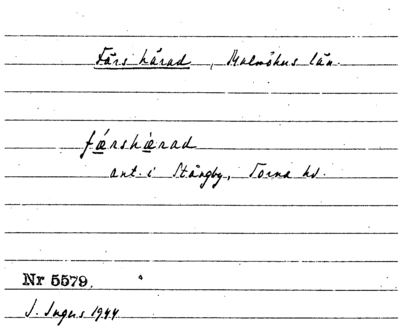 Färs härad, Malmöhus län.
fǽrshæ̀rad
ant. i Stångby, Torna hd.
Nr 5579.
I. Ingers 1944